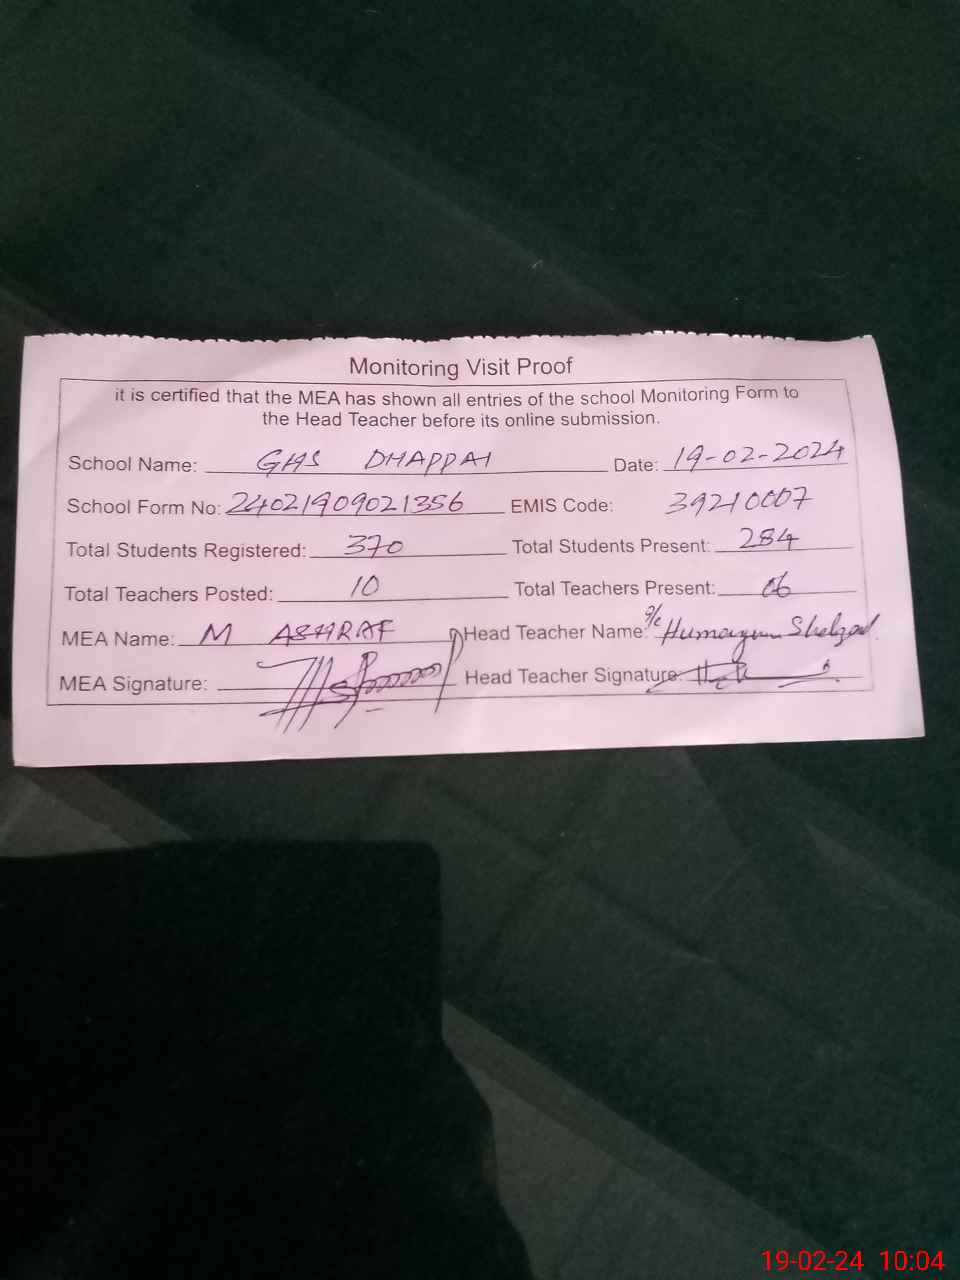 Monitoring Visit Proof
it is certified that the MEA has shown all entries of the school Monitoring Form to
the Head Teacher before its online submission.
School Name: GHS DHAPPAI Date: 19-02-2024
School Form No: 24021909021356 EMIS Code: 39210007
Total Students Registered: 370 Total Students Present: 284
Total Teachers Posted: 10 Total Teachers Present: 06
MEA Name: M ASHRAF Head Teacher Name: Humayun Shahzad
MEA Signature: Head Teacher Signature:
19-02-24 10:04